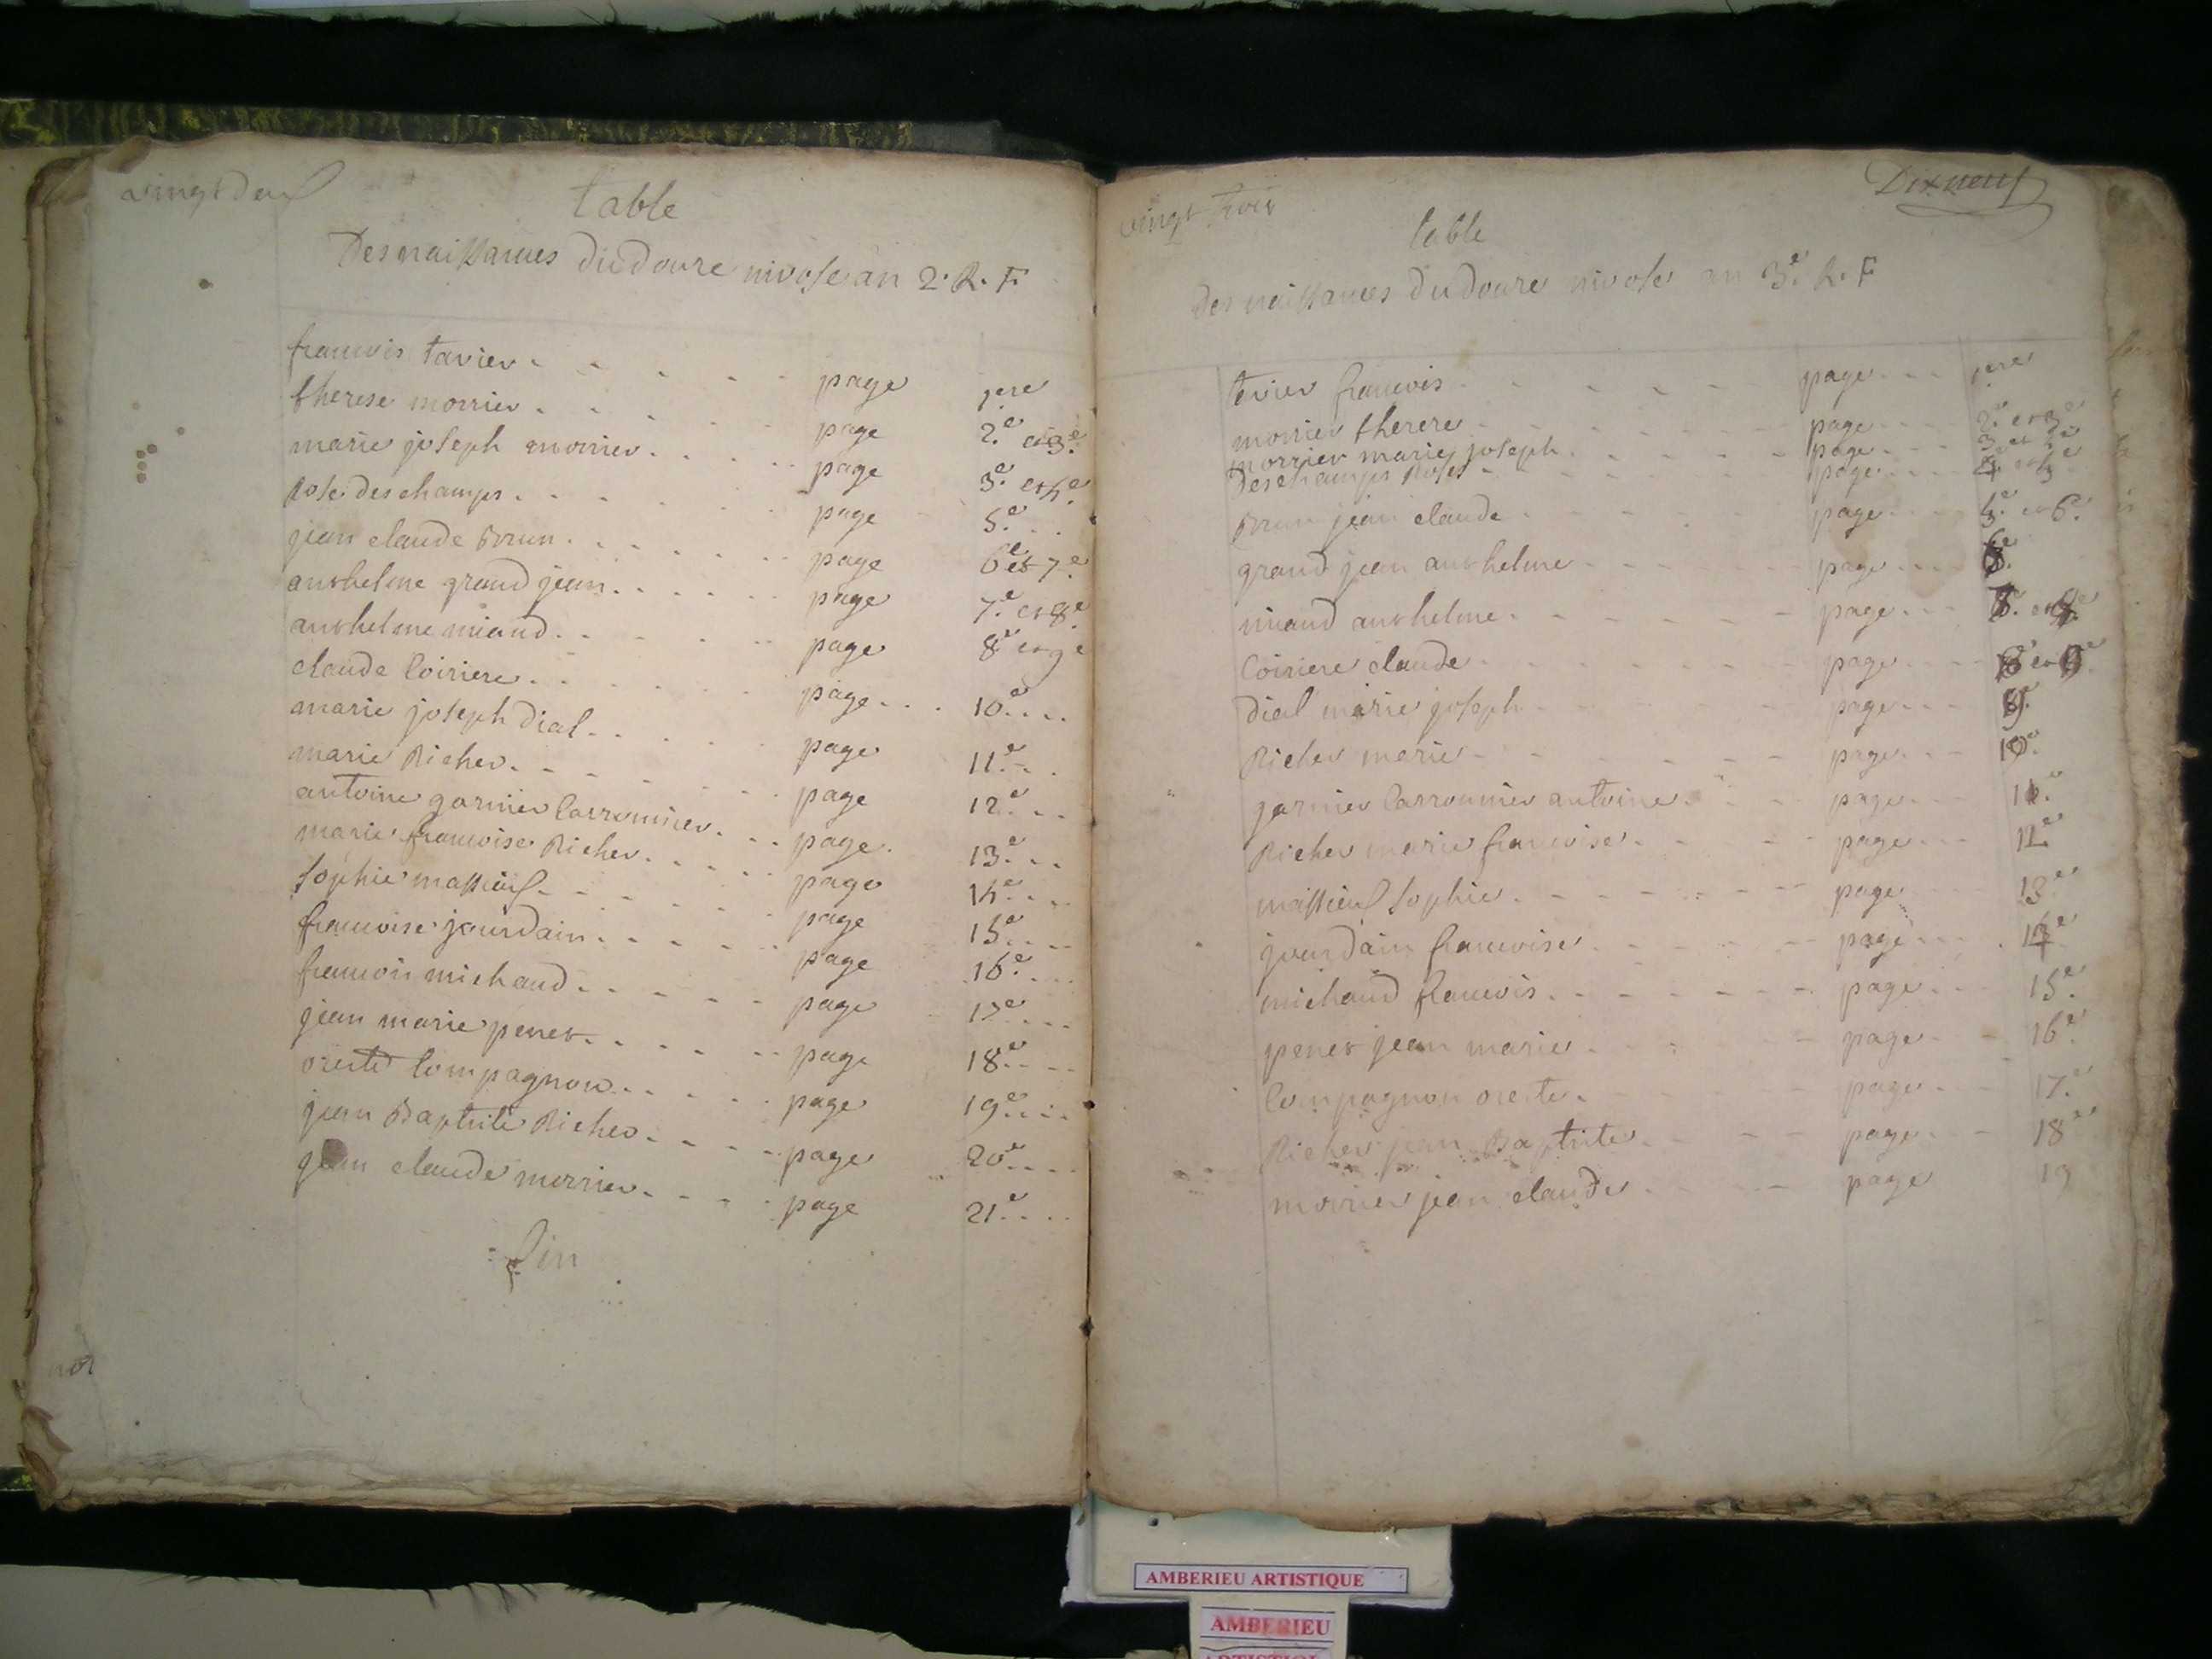 vingt deux
table
Des naissances du douze nivose an 2.e R. F.
francois tavier page 1ere
therese morrier page 2.e et 3.e
marie joseph morrier page 3.e et 4.e
Rose deschamps page 5.e
jean claude Brun page 6.e et 7.e
anthelme grand jean page 7.e et 8.e
anthelme miand page 8.e et 9.e
claude Coiriere page 10.e
marie joseph dial page 11.e
marie Richer page 12.e
antoine garnier Carronnier page 13.e
marie francoise Richer page 14.e
sophie massieuf page 15.e
francoise jourdain page 16.e
francois michaud page 17.e
jean marie penet page 18.e
oreste Compagnon page 19.e
jean Baptiste Richer page 20.e
jean claude morrier page 21.e
fin
vingt trois
Dix neuf
table
Des naissances du douze nivose an 3.e R. F
tavier francois page 1ere
morrier therese page 2.e et 3.e
morrier marie joseph page 3 et 4
Deschamps Rose page
Brun jean claude page 5.e et 6.e
grand jean anthelme page 6.e
miand anthelme page
Coiriere claude page
dial marie joseph page 9.e
Richer marie page 10.e
garnier Carronnier antoine page 11.e
Richer marie francoise page 12.e
massieuf sophie page 13.e
jourdain francoise page 14.e
michaud francois page 15.e
penet jean marie page 16.e
Compagnon oreste page 17.e
Richer jean Baptiste page 18.e
morrier jean claude page 19
AMBERIEU ARTISTIQUE
AMBERIEU
ARTISTIQU